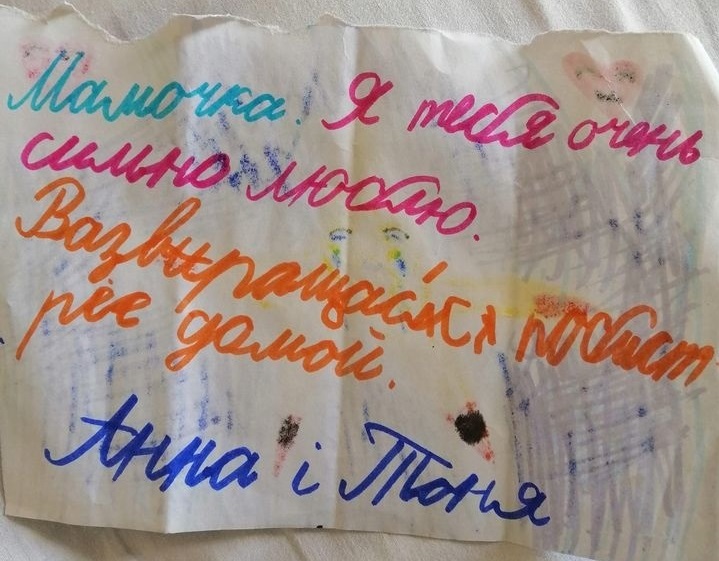 Мамочка. Я тебя очень
сильно люблю.
Вазвыращайся побист
рее домой.
Анна і Тоня